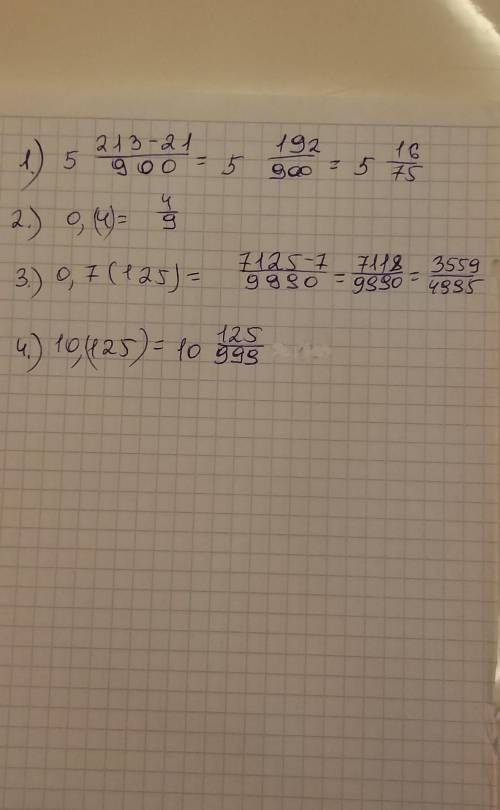 1.) 5 213-21/900 = 5 192/900 = 5 16/75
2.) 0,(4)= 4/9
3.) 0,7(125)= 7125-7/9990 = 7118/9990 = 3559/4995
4.) 10,(125)= 10 125/999